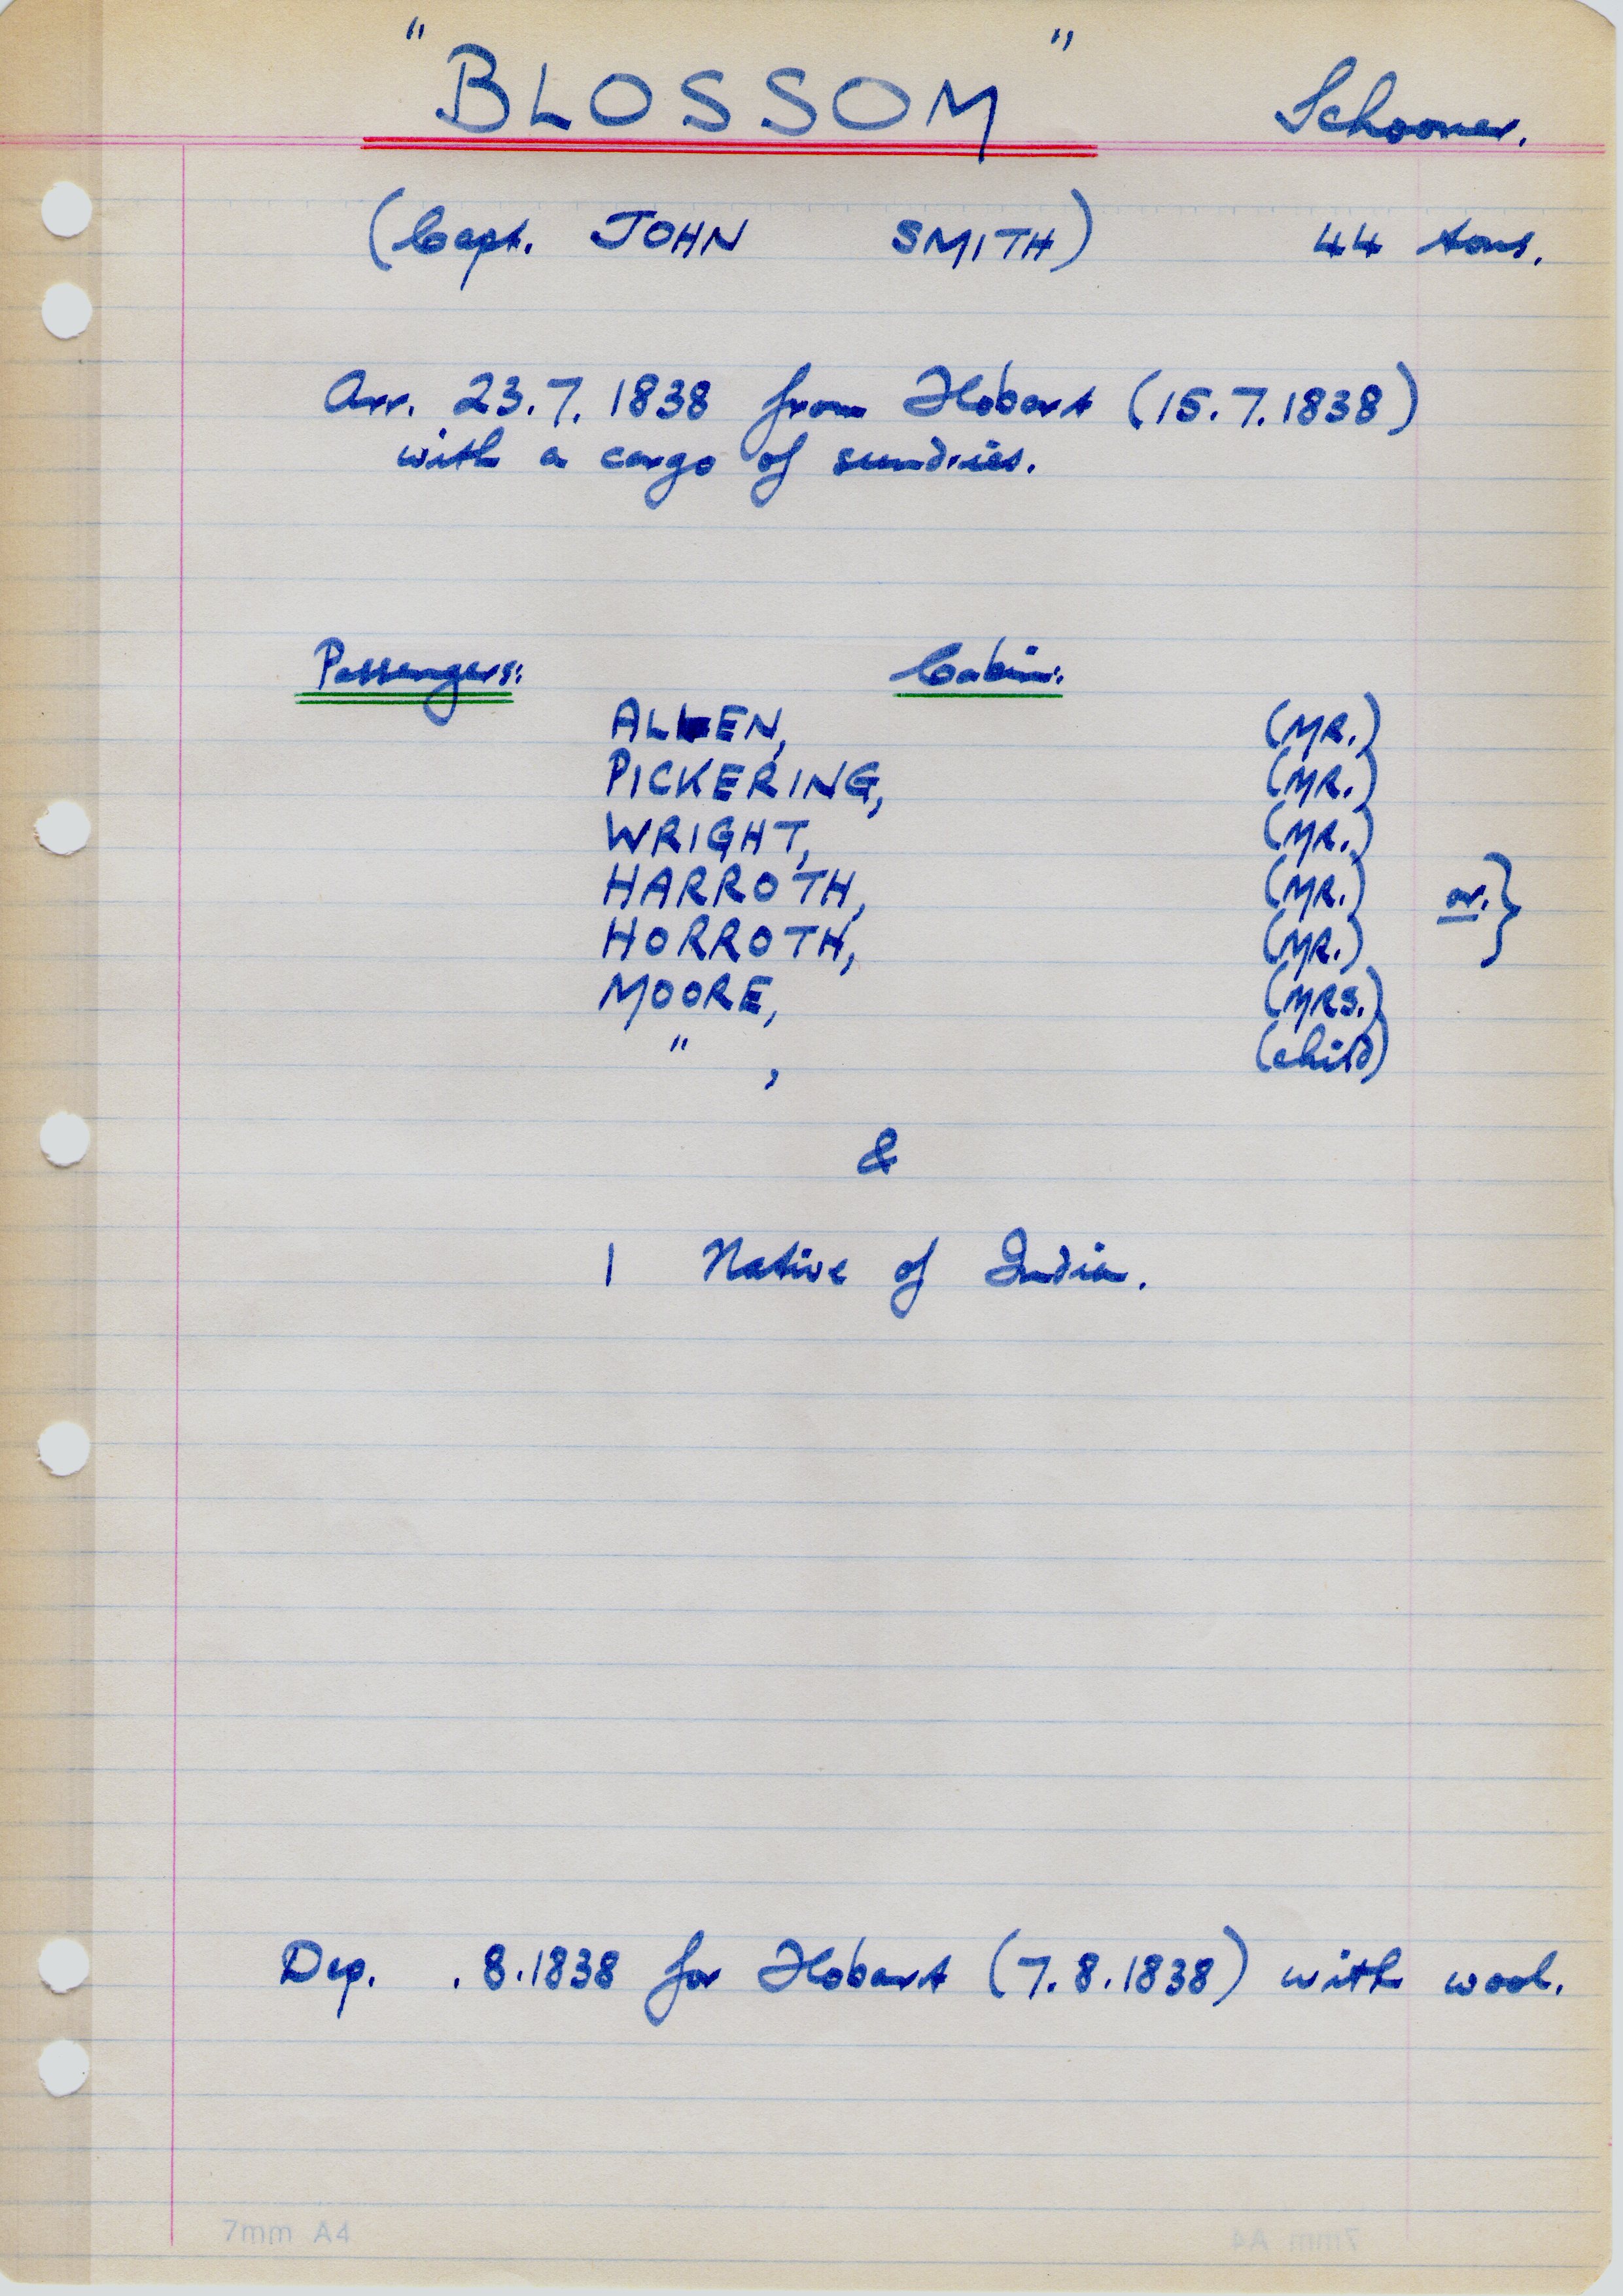 "BLOSSOM" Schooner.
(Capt. JOHN SMITH) 44 tons.
Arr. 23.7.1838 from Hobart (15.7.1838)
with a cargo of sundries.
Passengers: Cabin:
ALLEN, (MR.)
PICKERING, (MR.)
WRIGHT, (MR.)
HARROTH, (MR.) or. }
HORROTH, (MR.)
MOORE, (MRS.)
" , (child)
&
1 Native of India.
Dep. .8.1838 for Hobart (7.8.1838) with wool.
7mm A4
7mm A4